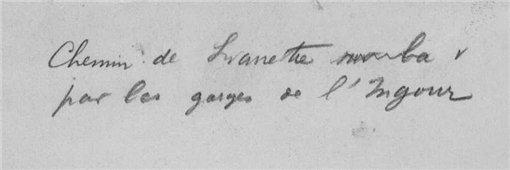 Chemin de Svanetie
par les gorges de l'Ingour